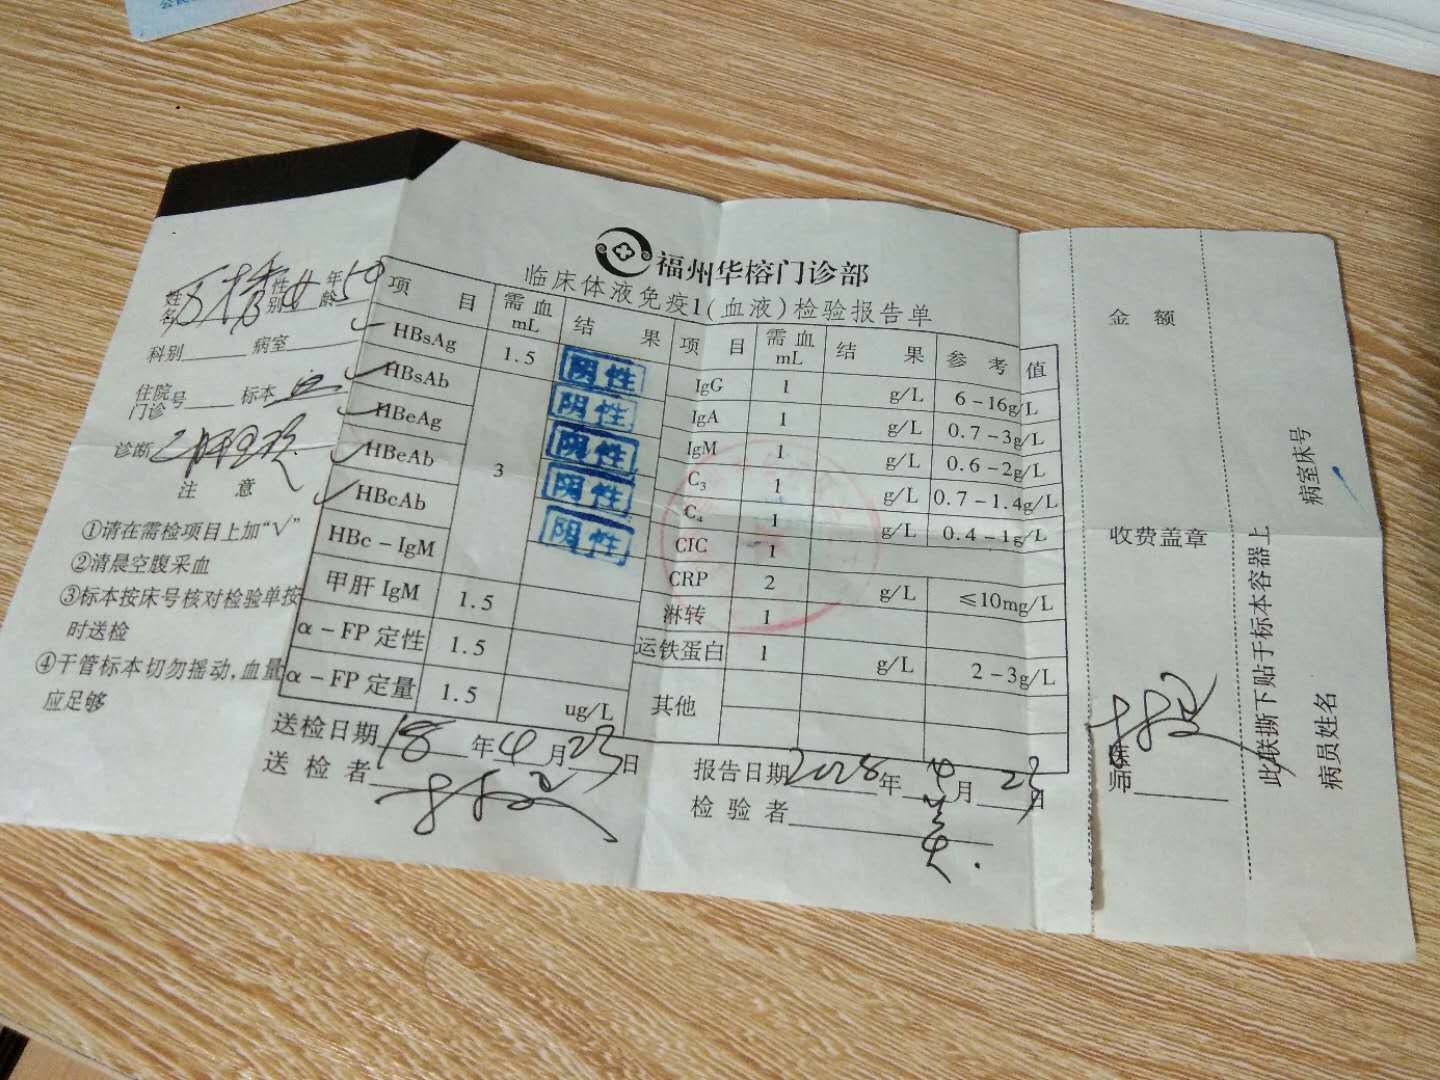 福州华榕门诊部
临床体液免疫1(血液)检验报告单
姓名 性别 女 年龄 50
科别 病室
住院 门诊 号 标本 血
诊断
注 意
①请在需检项目上加“√”
②清晨空腹采血
③标本按床号核对检验单按
时送检
④干管标本切勿摇动,血量
应足够
项 目 需血 mL 结 果 项 目 需血 mL 结 果 参 考 值
√ HBsAg 1.5 阴性 IgG 1 g/L 6-16g/L
√ HBsAb 3 阴性 IgA 1 g/L 0.7-3g/L
√ HBeAg 阴性 IgM 1 g/L 0.6-2g/L
√ HBeAb 阴性 C3 1 g/L 0.7-1.4g/L
√ HBcAb 阴性 C4 1 g/L 0.4-1g/L
HBc-IgM CIC 1
甲肝 IgM 1.5 CRP 2 g/L ≤10mg/L
α-FP 定性 1.5 淋转 1
α-FP 定量 1.5 ug/L 运铁蛋白 1 g/L 2-3g/L
其他
送检日期 18 年 4 月 23 日
送 检 者
报告日期 2018 年 4 月 23 日
检 验 者
金 额
收费盖章
医师
此联撕下贴于标本容器上
病室床号
病员姓名